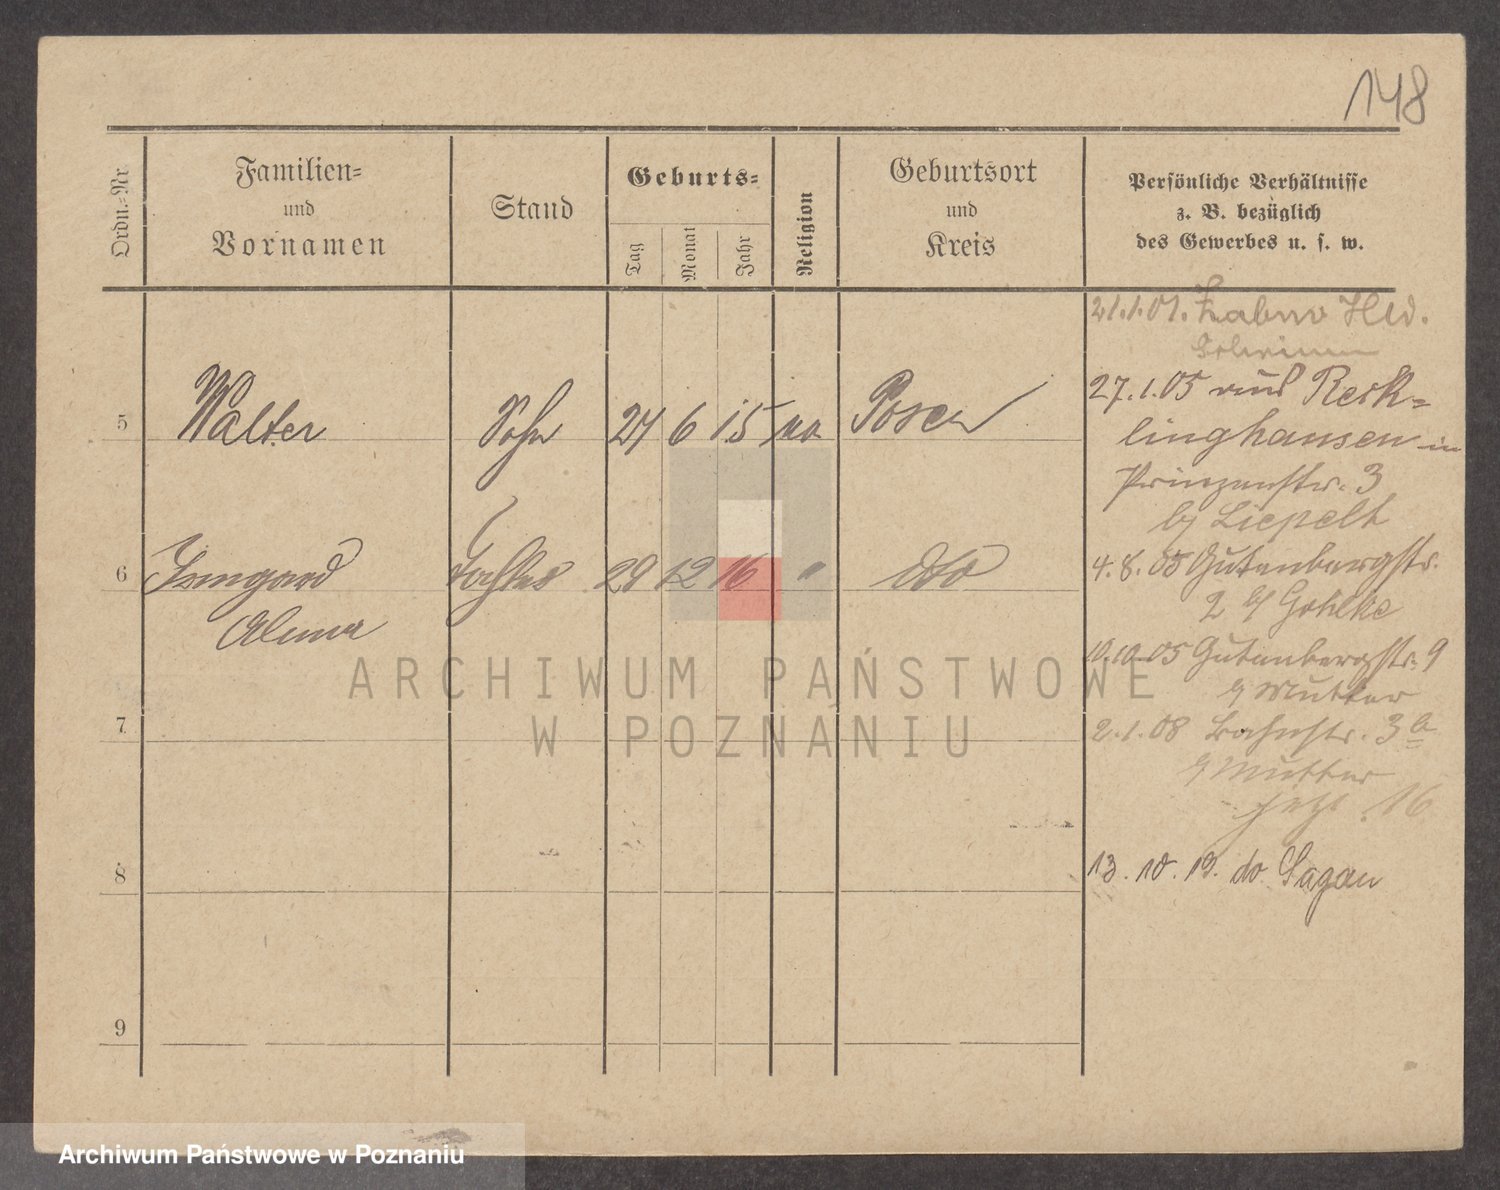 148
Ordn.-Nr.
Familien-
und
Vornamen
Stand
Geburts-
Tag
Monat
Jahr
Religion
Geburtsort
und
Kreis
Persönliche Verhältnisse
z. B. bezüglich
des Gewerbes u. s. w.
21.1.01. Zabno
27.1.05 aus Reck-
linghausen in
Prinzenstr. 3
bj Liepelt
4.8.05 Gutenbergstr.
2 bj Gohlke
10.10.05 Gutenbergstr. 9
Mutter
2.1.08 Bahnstr. 3a
Mutter
jetzt 16
13. 10. 19. do Sagan
5 Walter Sohn 24 6 15 Posen
6 Irmgard Tochter 29 12 16 " dto
7
8
9
ARCHIWUM PAŃSTWOWE
W POZNANIU
Archiwum Państwowe w Poznaniu